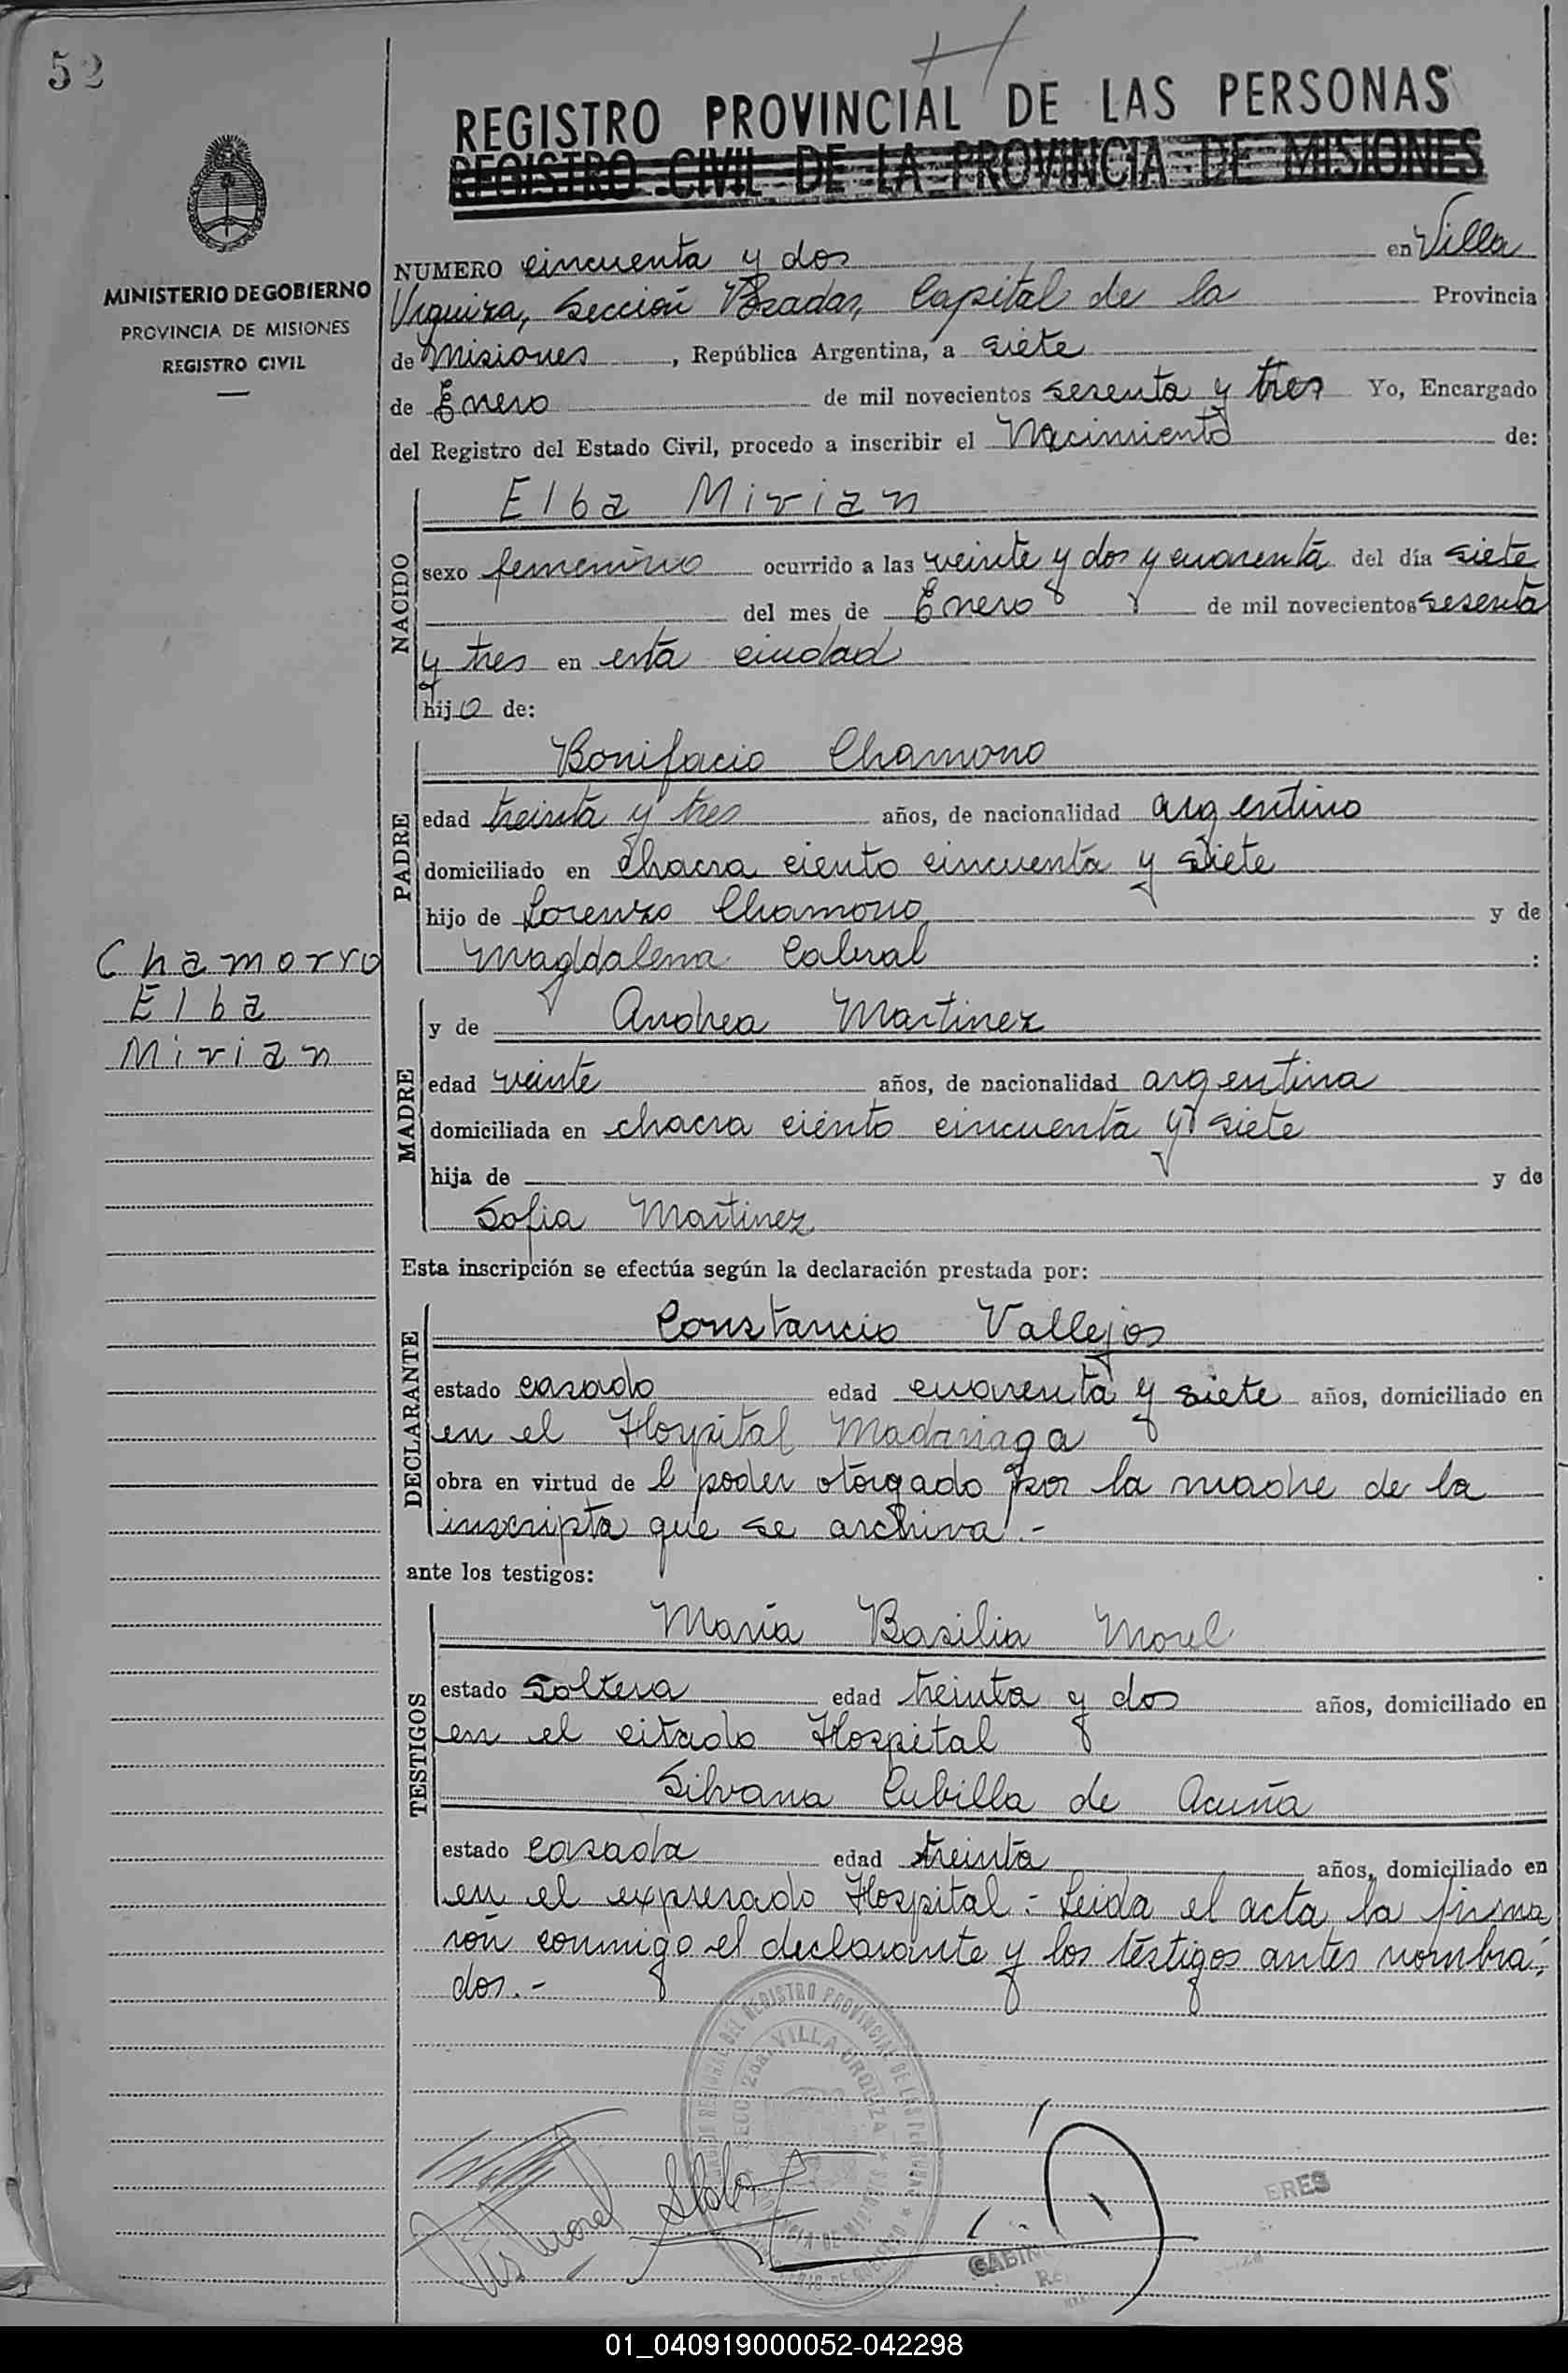 52
REGISTRO PROVINCIAL DE LAS PERSONAS
REGISTRO CIVIL DE LA PROVINCIA DE MISIONES
MINISTERIO DE GOBIERNO
PROVINCIA DE MISIONES
REGISTRO CIVIL
NUMERO cincuenta y dos en Villa
Urquiza, Sección Posadas, Capital de la Provincia
de Misiones, República Argentina, a siete
de Enero de mil novecientos sesenta y tres Yo, Encargado
del Registro del Estado Civil, procedo a inscribir el Nacimiento de:
NACIDO
Elba Mirian
sexo femenino ocurrido a las veinte y dos y cuarenta del día siete
del mes de Enero de mil novecientos sesenta
y tres en esta ciudad
hijo de:
PADRE
Bonifacio Chamorro
edad treinta y tres años, de nacionalidad argentino
domiciliado en chacra ciento cincuenta y siete
hijo de Lorenzo Chamorro y de
Magddalena Cabral :
Chamorro
Elba
Mirian
MADRE
y de Andrea Martinez
edad veinte años, de nacionalidad argentina
domiciliada en chacra ciento cincuenta y siete
hija de y de
Sofia Martinez
Esta inscripción se efectúa según la declaración prestada por:
DECLARANTE
Constancio Vallejos
estado casado edad cuarenta y siete años, domiciliado en
en el Hospital Madariaga
obra en virtud de l poder otorgado por la madre de la
inscripta que se archiva.-
ante los testigos:
TESTIGOS
María Basilia Morel
estado Soltera edad treinta y dos años, domiciliado en
en el citado Hospital
Silvana Cubilla de Acuña
estado casada edad treinta años, domiciliado en
en el expresado Hospital.- Leida el acta, la firma
ron conmigo el declarante y los testigos antes nombra-
dos.-
DEL REGISTRO PROVINCIAL DE LAS PERSONAS
SECC. 2da. VILLA URQUIZA
Morel
GABIN
ERES
01_040919000052-042298